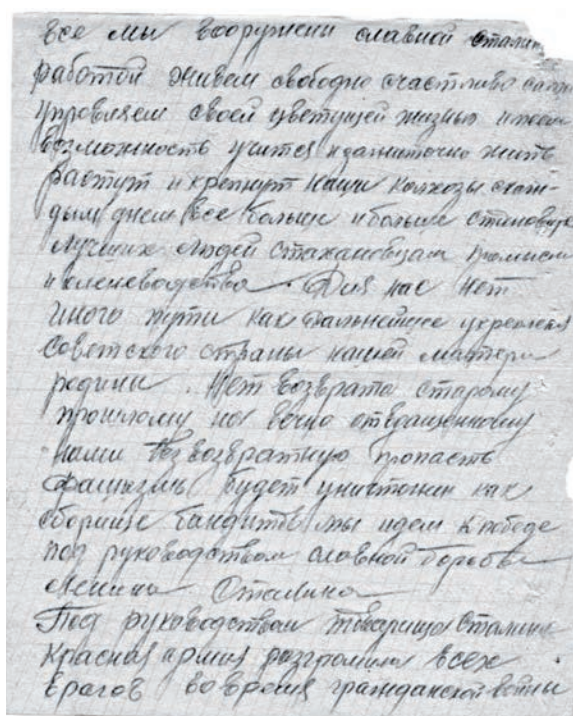 все мы вооружены славной сталин
работой живем свободно счастливо сами
управляем своей цветущей жизнью имеем
возможность учится и жить
растут и крепнут наши колхозы скаж-
дым днем все больше и больше становится
лучших людей стахановцам
и оленеводства. Для нас нет
иного пути как дальнейшее укрепления
советского страны нашей матери
родины. Нет возврата старому
прошлому на вечно
нами безвозвратную пропасть
фашизм будет уничтожен как
сборище бандитов мы идем к победе
под руководством славной борьбы
Ленина Сталина
Под руководством товарища Сталина
красная армия разгромила всех
врагов во время гражданской войны